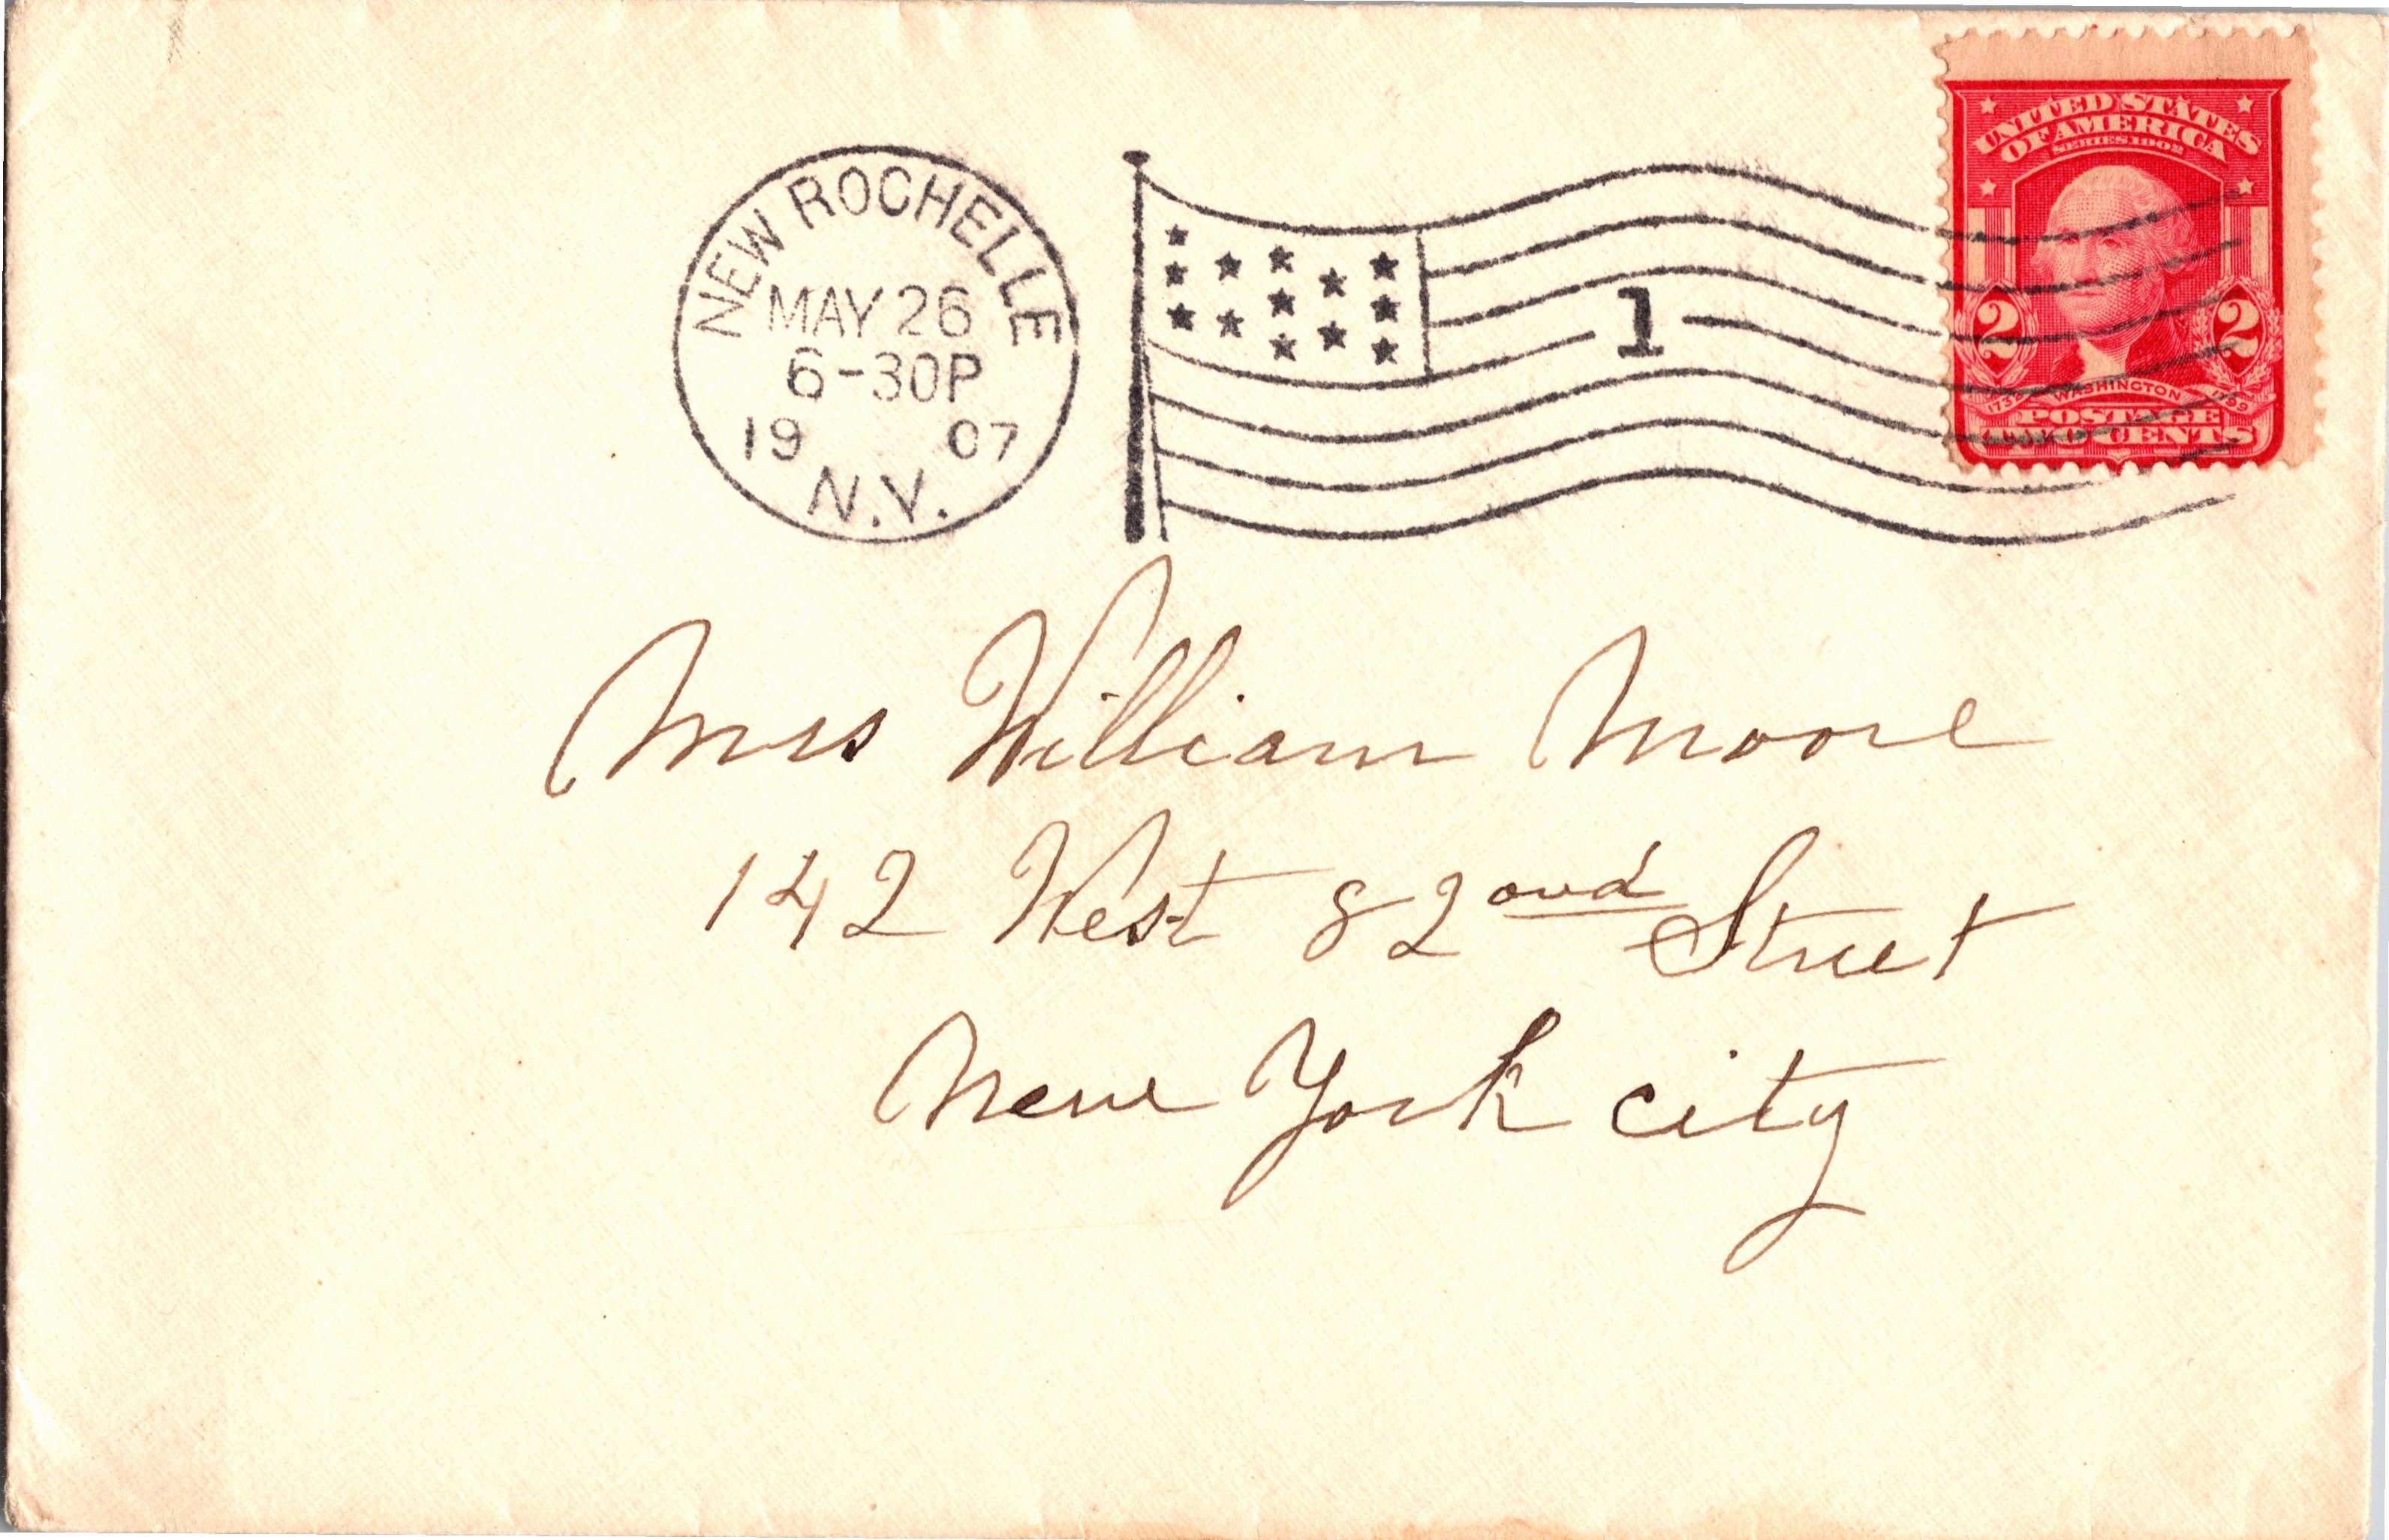 NEW ROCHELLE
MAY 26
6-30P
19 07
N.Y.
1
UNITED STATES
OF AMERICA
SERIES 1902
2 2
1732 WASHINGTON 1799
POSTAGE
TWO CENTS
Mrs William Moore
142 West 82ond Street
New York city